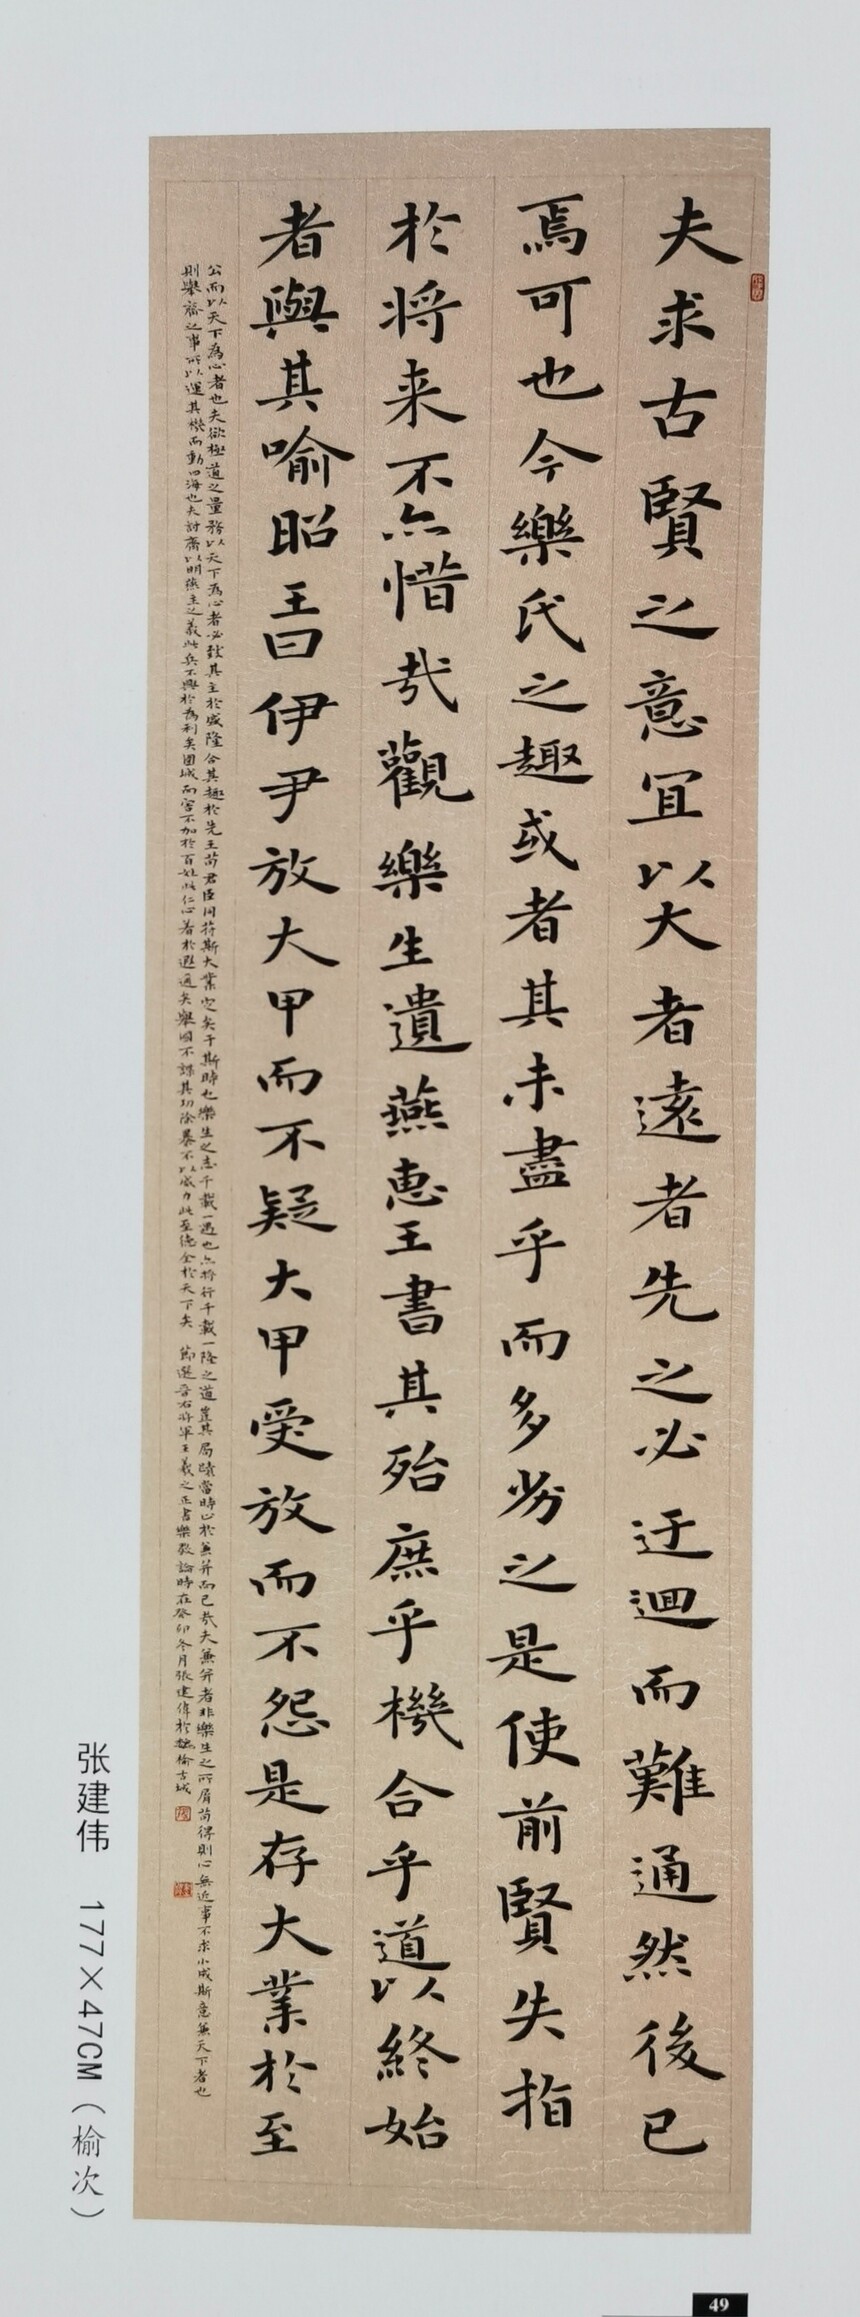 夫求古賢之意冝以大者遠者先之必迂迴而難通然後已
焉可也今樂氏之趣或者其未盡乎而多劣之是使前賢失指
於将来不亦惜哉觀樂生遺燕惠王書其殆庶乎機合乎道以終始
者與其喻昭王曰伊尹放大甲而不疑大甲受放而不怨是存大業於至
公而以天下為心者也夫欲極道之量務以天下為心者必致其主於盛隆合其趣於先王苟君臣同符斯大業定矣于斯時也樂生之志千載一遇也亦將行千載一隆之道豈其局蹟當時止於兼并而已哉夫兼并者非樂生之所屑苟得則心無近事不求小成斯意兼天下者也
則舉齊之事所以運其機而動四海也夫討齊以明燕主之義此兵不興於為利矣圍城而害不加於百姓此仁心着於遐迩矣舉國不謀其功除暴不以威力此至德全於天下矣 節選晉右將軍王羲之正書樂毅論時在癸卯冬月張建偉於魏榆古城
张建伟 177×47CM（榆次）
49